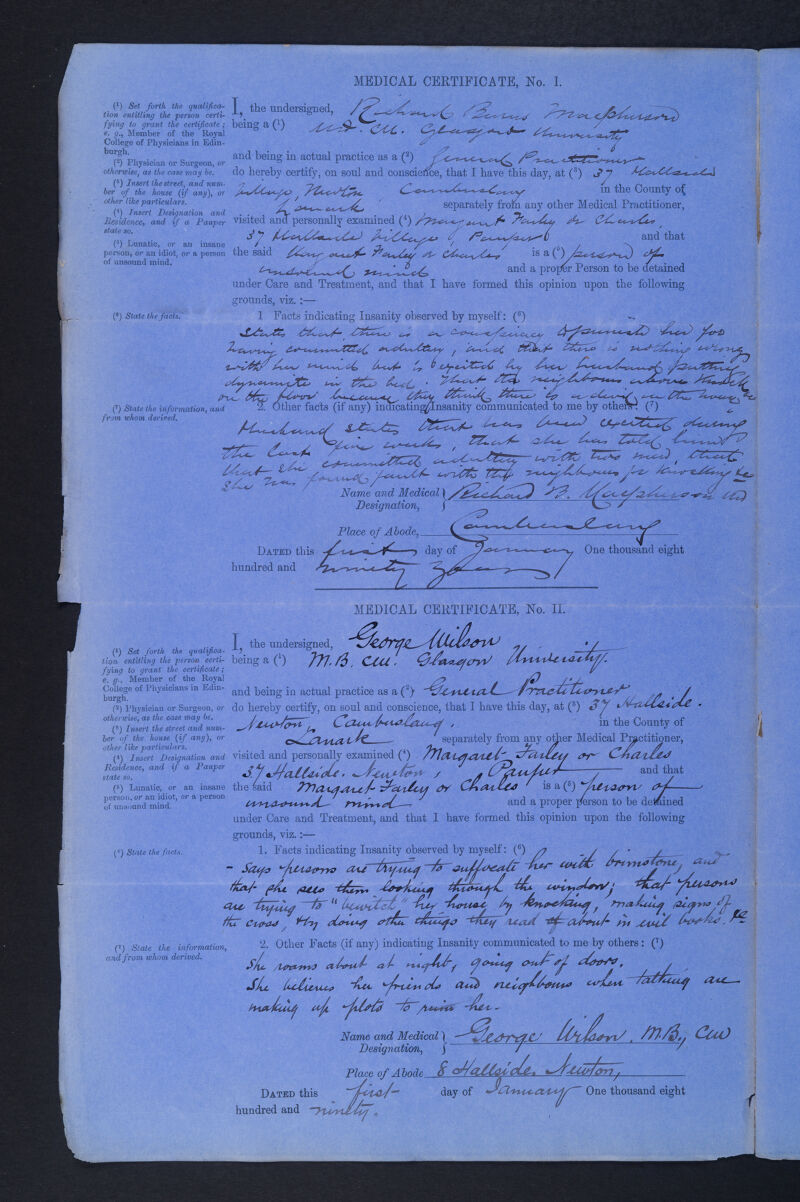 MEDICAL CERTIFICATE, No. I.
(¹) Set forth the qualifica-
tion entitling the person certi-
fying to grant the certificate;
e. g., Member of the Royal
College of Physicians in Edin-
burgh.
(²) Physician or Surgeon, or
otherwise, as the case may be.
(³) Insert the street, and num-
ber of the house (if any), or
other like particulars.
(⁴) Insert Designation and
Residence, and if a Pauper
state so.
(⁵) Lunatic, or an insane
person, or an idiot, or a person
of unsound mind.
(⁶) State the facts.
(⁷) State the information, and
from whom derived.
I, the undersigned, Richard Burns Macpherson
being a (¹) M.D. C.M. Glasgow University
and being in actual practice as a (²) General Practitioner
do hereby certify, on soul and conscience, that I have this day, at (³) 37 Hallside
Village, Newton Cambuslang in the County of
Lanark separately from any other Medical Practitioner,
visited and personally examined (⁴) Margaret Farley or Charles,
37 Hallside Village, Pauper and that
the said Margaret Farley or Charles is a (⁵) person of
unsound mind and a proper Person to be detained
under Care and Treatment, and that I have formed this opinion upon the following
grounds, viz.:—
1 Facts indicating Insanity observed by myself: (⁶)
States that there is a conspiracy to punish her for
having committed adultery, and that there is nothing wrong
with her mind but is excited by her husband putting
dynamite in the bed. That the neighbours above knock
on the floor because they think there is a devil in the house
2. Other facts (if any) indicating Insanity communicated to me by others: (⁷)
Husband states that has been excited during
the last five weeks, that she has told him
that she committed adultery with two men, that
she has found fault with the neighbours for knocking &c
Name and Medical Designation, Richard B. Macpherson MD
Place of Abode, Cambuslang
DATED this first day of January One thousand eight
hundred and ninety years
MEDICAL CERTIFICATE, No. II.
(¹) Set forth the qualifica-
tion entitling the person certi-
fying to grant the certificate;
e. g., Member of the Royal
College of Physicians in Edin-
burgh.
(²) Physician or Surgeon, or
otherwise, as the case may be.
(³) Insert the street and num-
ber of the house (if any), or
other like particulars.
(⁴) Insert Designation and
Residence, and if a Pauper
state so.
(⁵) Lunatic, or an insane
person, or an idiot, or a person
of unsound mind.
(⁶) State the facts.
(⁷) State the information,
and from whom derived.
I, the undersigned, George Wilson
being a (¹) M.B. C.M. Glasgow University.
and being in actual practice as a (²) General Practitioner
do hereby certify, on soul and conscience, that I have this day, at (³) 37 Hallside.
Newton, Cambuslang. in the County of
Lanark separately from any other Medical Practitioner,
visited and personally examined (⁴) Margaret Farley or Charles
37 Hallside. Newton, Pauper and that
the said Margaret Farley or Charles is a (⁵) person of
unsound mind and a proper person to be detained
under Care and Treatment, and that I have formed this opinion upon the following
grounds, viz.:—
1. Facts indicating Insanity observed by myself: (⁶)
- Says persons are trying to suffocate her with brimstone, and
that she sees them looking through the window; that persons
are trying to "bewitch" her house by knocking, making signs of
the cross, & by doing other things they read of about in evil books. &c
2. Other Facts (if any) indicating Insanity communicated to me by others: (⁷)
She roams about at night, going out of doors.
She believes her friends and neighbours when talking are
making up plots to ruin her.
Name and Medical Designation, George Wilson. M.B., C.M
Place of Abode 8 Hallside, Newton,
DATED this first day of January One thousand eight
hundred and ninety.